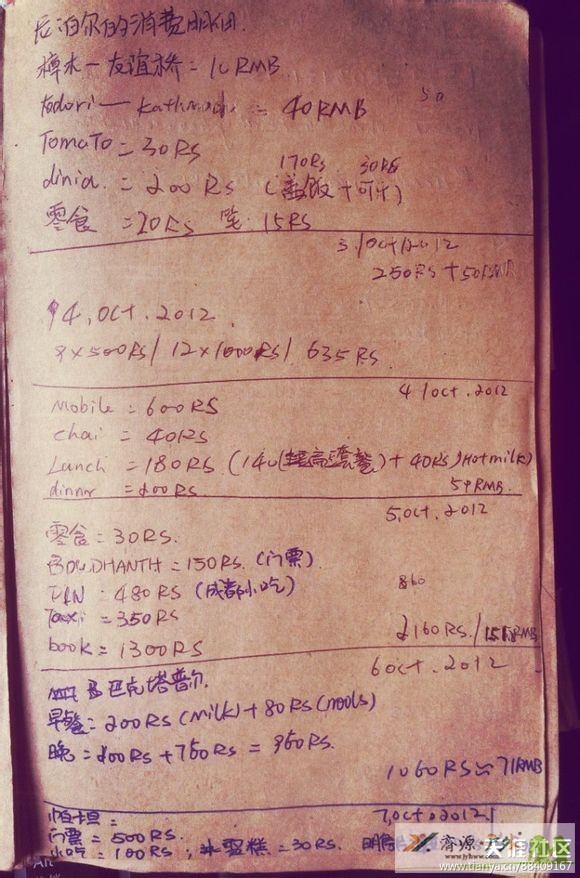 尼泊尔的消费明细.
樟木—友谊桥 = 10RMB
Kodori — Kathmandu = 40RMB
50
Tomato = 30RS
170RS 30RS
= 200RS (盖饭+可乐)
零食 = 20RS 笔 15RS
3/Oct/2012
250RS + 50RMB
4,Oct.2012
9×500RS/12×1000RS/635RS
4/Oct.2012
Mobile = 600RS
chai = 40RS
Lunch = 180RS (140(套餐)+40RS)Hotmilk)
dinner = 200RS.
59RMB.
5,Oct.2012
零食 = 30RS.
BOUDHANTH = 150RS.(门票)
: 480RS (成都小吃)
860
Taxi = 350RS
2160RS./155RMB
book = 1300RS
6Oct.2012
巴克塔普尔
早餐 = 200RS(Milk)+80RS(nools)
晚 = 200RS+760RS = 960RS.
1060RS≈71RMB
帕坦 =
7,Oct.2012
门票 = 500RS.
小吃 = 100RS ; 冰雪糕 = 30RS.
齐源
www.jyhww.com
天涯社区
www.tianya.cn/88409167